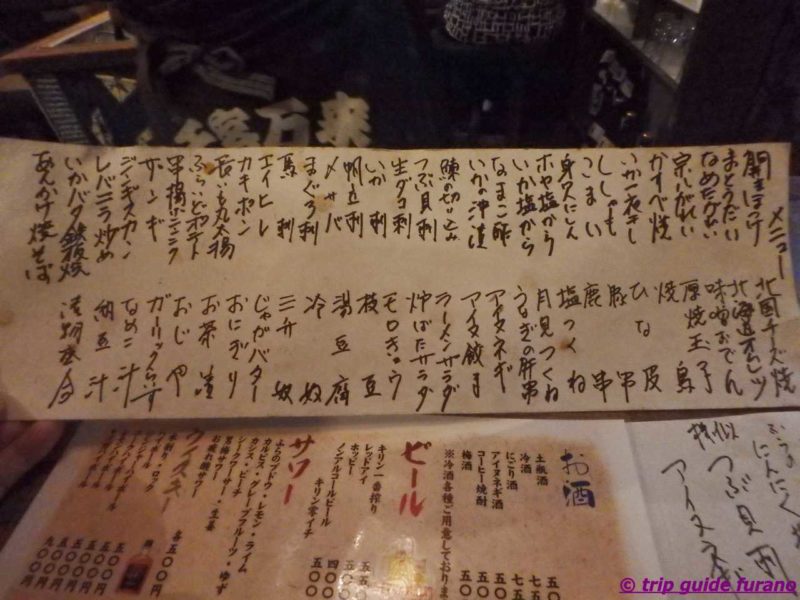 来万客千
メニュー
開きほっけ
まとうだい
なめたがれい
宗八がれい
かすべ焼
いか一夜干し
ししゃも
こまい
身欠にしん
ホヤ塩から
いか塩から
なまこ酢
いかの沖漬
鰊の切り込み
つぶ貝刺
生ダコ刺
いか刺
帆立刺
〆サバ
まぐろ刺
馬刺
エイヒレ
カキポン
長いも丸太揚
ふらいどポテト
早揚げニンニク
ザンギ
ジンギスカン
レバニラ炒め
いかバタ鉄板焼
あんかけ焼そば
北国チーズ焼
北海道オムレツ
味噌おでん
厚焼玉子
焼鳥
ひな皮
豚串
鹿串
塩つくね
月見つくね
うなぎの肝串
アイヌネギ
アイヌ餃子
ラーメンサラダ
炉ばたサラダ
モロきゅう
枝豆
湯豆腐
冷奴
三升奴
じゃがバター
おにぎり
お茶漬
おじや
ガーリックライス
なめこ汁
納豆汁
漬物盛合
お酒
土瓶酒
冷酒
にごり酒
アイヌネギ酒
コーヒー焼酎
梅酒
※冷酒各種ご用意しておりま
ビール
キリン一番搾り
レッドアイ
ホッピー
ノンアルコールビール
キリン零イチ
サワー
ふらのブドウ・レモン・ライム
カルピス・グレープフルーツ・ゆず
カシス・ピーチ
シークワーサー・生姜
男梅サワー
お疲れ様サワー
各五〇〇円
ウイスキー
水割り
つぶ貝刺
アイヌネギ
© trip guide furano